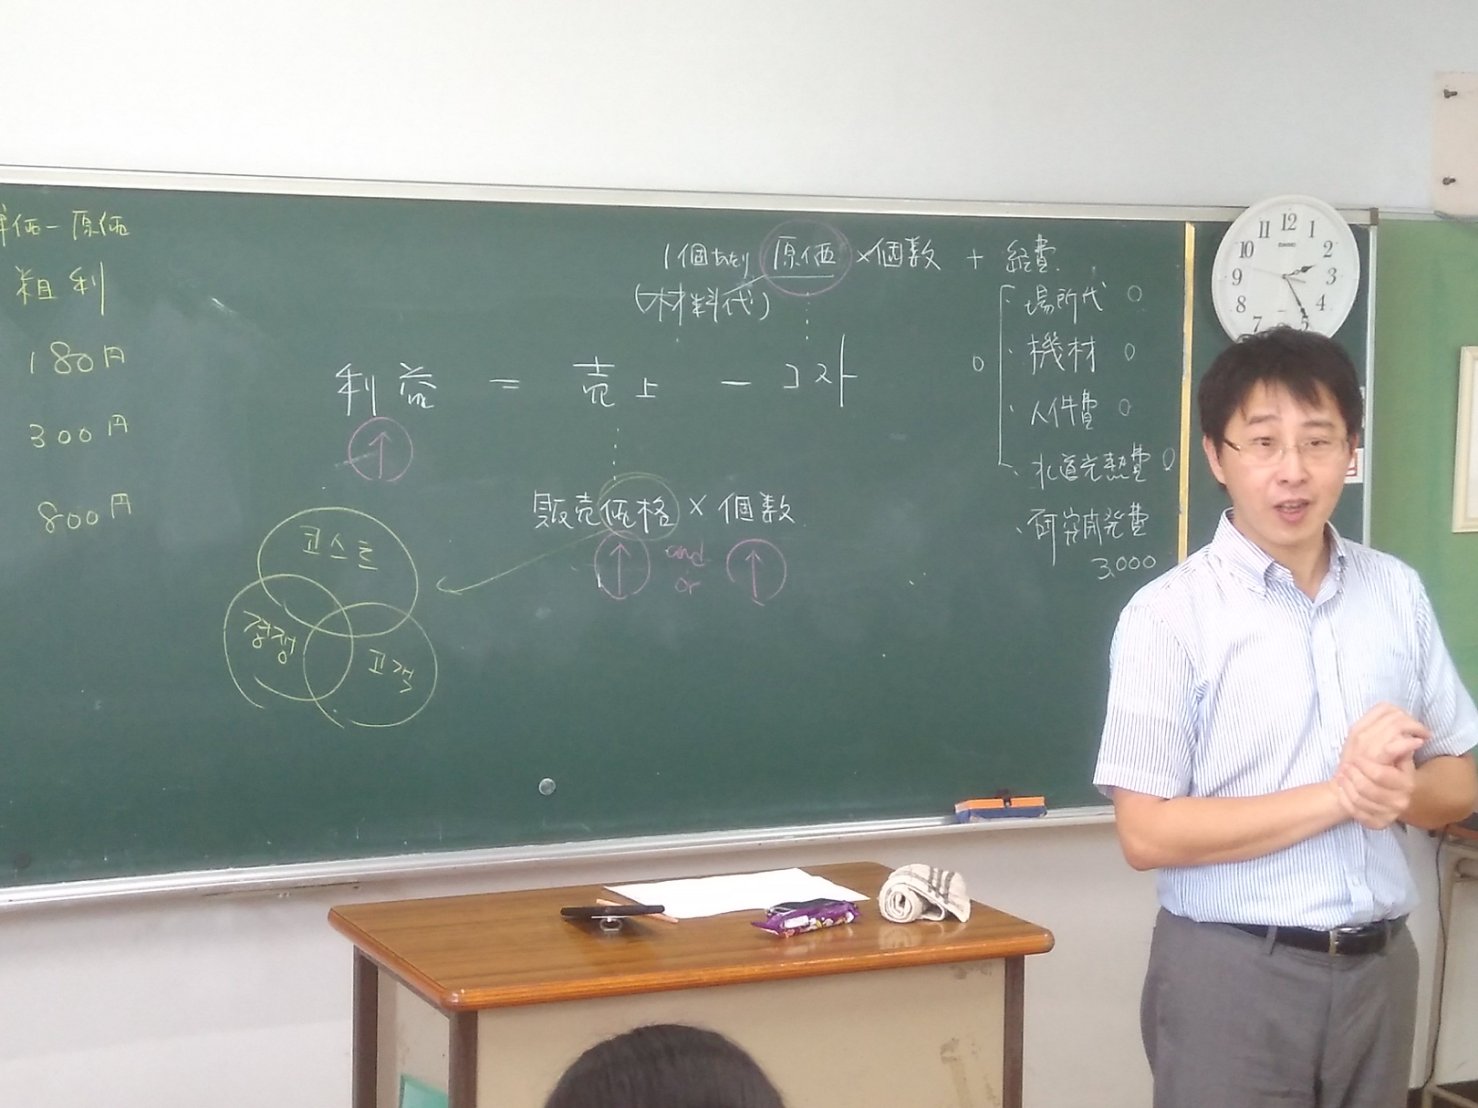 単価-原価
粗利
180円
300円
800円
1個あたり 原価 ×個数 + 経費
(材料代)
・場所代 0
・機材 0
・人件費 0
・水道光熱費 0
・研究開発費
3,000
0
利益 = 売上 - コスト
↑
販売価格 × 個数
↑ and or ↑
코스트
경쟁
고객
12
1
2
3
4
5
7
8
9
10
11
CASIO